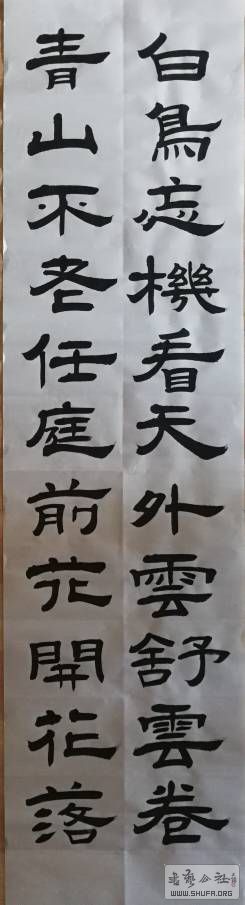 白鳥忘機看天外雲舒雲卷
青山不老任庭前花開花落
書藝公社
WWW.SHUFA.ORG